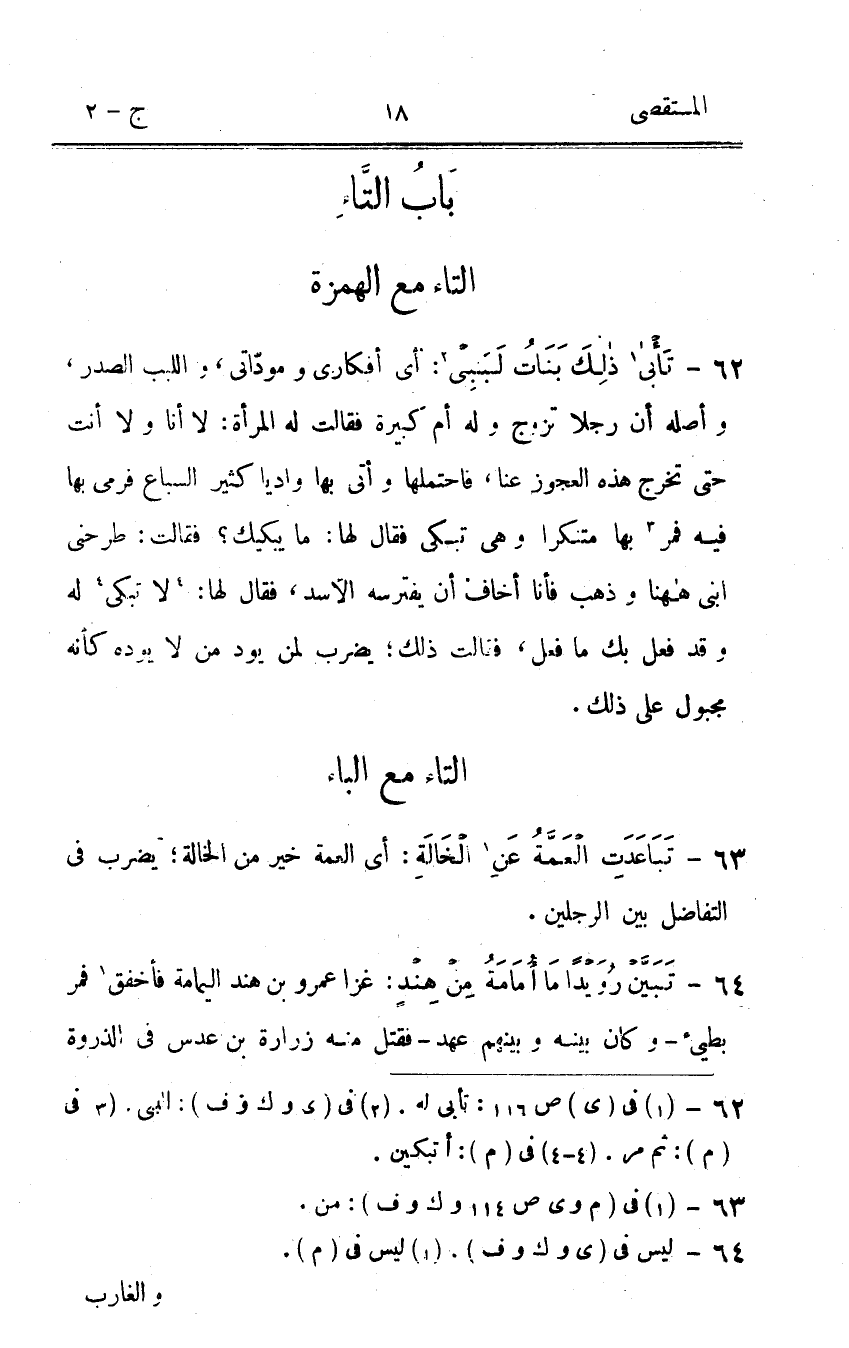 المستقصى ١٨ ج - ٢
بَابُ التَّاءِ
التاء مع الهمزة
٦٢ - تَأْبَىٰ¹ ذٰلِكَ بَنَاتُ لَبَبِىْ²: أى أفكارى و موداّتى، و اللبب الصدر،
و أصله أن رجلا تزوج و له أم كبيرة فقالت له المرأة: لا أنا و لا أنت
حتى تخرج هذه العجوز عنا، فاحتملها و أتى بها واديا كثير السباع فرمى بها
فيه فمر³ بها متنكرا و هى تبكى فقال لها: ما يبكيك؟ فقالت: طرحنى
ابنى هٰهنا و ذهب فأنا أخاف أن يفترسه الأسد، فقال لها: ⁴لا تبكى⁴ له
و قد فعل بك ما فعل، فقالت ذلك؛ يضرب لمن يود من لا يوده كأنه
مجبول على ذلك.
التاء مع الباء
٦٣ - تَبَاعَدَتِ الْعَمَّةُ عَنِ¹ الْخَالَةِ: أى العمة خير من الخالة؛ يضرب فى
التفاضل بين الرجلين.
٦٤ - تَبَيَّنْ رُوَيْدًا مَا أُمَامَةُ مِنْ هِنْدٍ: غزا عمرو بن هند اليمامة فأخفق¹ فمر
بطيئ - و كان بينه و بينهم عهد - فقتل منه زرارة بن عدس فى الذروة
٦٢ - (١) فى (ى) ص ١١٦: تأبى له. (٢) فى (ى و ك و ف): البى. (٣ فى
(م): ثم مر. (٤-٤) فى (م): أ تبكين.
٦٣ - (١) فى (م وى ص ١١٤ و ك و ف): من.
٦٤ - ليس فى (ى و ك و ف). (١) ليس فى (م).
و الغارب